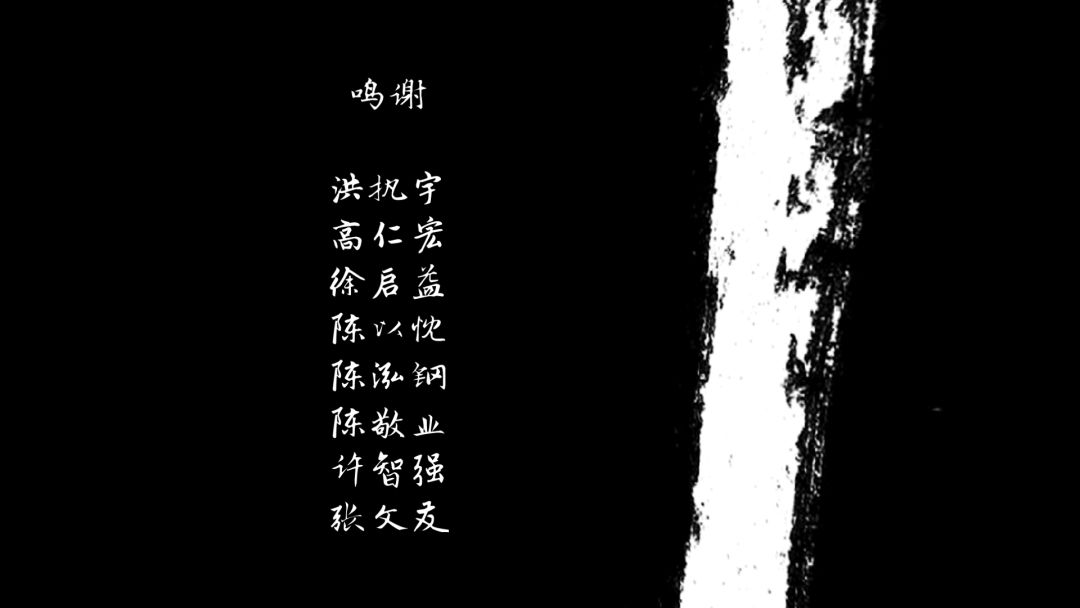 鸣谢
洪 宇
高仁宏
徐启益
陈以忱
陈泓钢
陈敬业
许智强
张文友